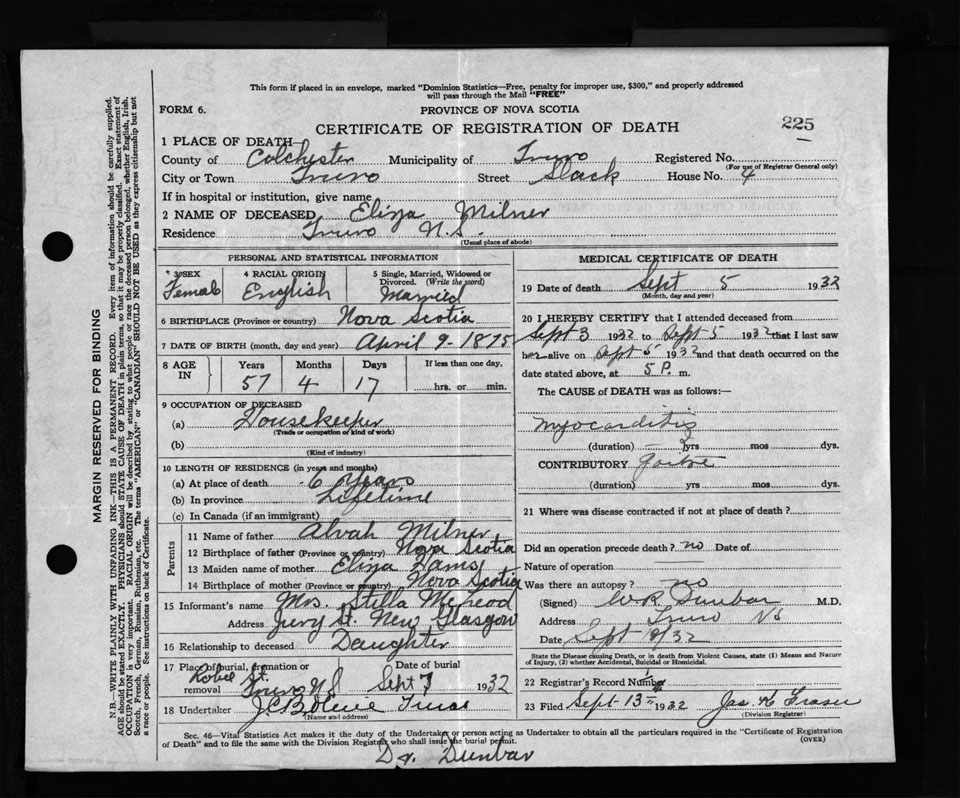 This form if placed in an envelope, marked "Dominion Statistics—Free, penalty for improper use, $300," and properly addressed
will pass through the Mail "FREE"
FORM 6.
PROVINCE OF NOVA SCOTIA
225
CERTIFICATE OF REGISTRATION OF DEATH
1 PLACE OF DEATH
County of Colchester Municipality of Truro Registered No.
(For use of Registrar General only)
City or Town Truro Street Slack House No. 4
If in hospital or institution, give name
2 NAME OF DECEASED Eliza Milner
Residence Truro N.S.
(Usual place of abode)
PERSONAL AND STATISTICAL INFORMATION
3 SEX 4 RACIAL ORIGIN 5 Single, Married, Widowed or Divorced. (Write the word)
Female English Married
6 BIRTHPLACE (Province or country) Nova Scotia
7 DATE OF BIRTH (month, day and year) April 9-1875
8 AGE IN Years Months Days If less than one day,
57 4 17 hrs. or min.
9 OCCUPATION OF DECEASED
(a) Housekeeper
(Trade or occupation or kind of work)
(b)
(Kind of industry)
10 LENGTH OF RESIDENCE (in years and months)
(a) At place of death 6 Years
(b) In province Lifetime
(c) In Canada (if an immigrant)
Parents
11 Name of father Alvah Milner
12 Birthplace of father (Province or country) Nova Scotia
13 Maiden name of mother Eliza
14 Birthplace of mother (Province or country) Nova Scotia
15 Informant's name Mrs. Stella McLeod
Address Jury St. New Glasgow
16 Relationship to deceased Daughter
17 Place of burial, cremation or removal Robie St. Truro NS
Date of burial Sept 7 1932
18 Undertaker J.C. Truro
(Name and address)
MEDICAL CERTIFICATE OF DEATH
19 Date of death Sept 5 1932
(Month, day and year)
20 I HEREBY CERTIFY that I attended deceased from
Sept 3 1932 to Sept 5 1932 that I last saw
her alive on Sept 5 1932 and that death occurred on the
date stated above, at 5 P. m.
The CAUSE OF DEATH was as follows:
Myocarditis
(duration) yrs mos dys.
CONTRIBUTORY Goitre
(duration) yrs mos dys.
21 Where was disease contracted if not at place of death?
Did an operation precede death? no Date of
Nature of operation
Was there an autopsy? no
(Signed) W.R. Dunbar M.D.
Address Truro NS
Date Sept /32
State the Disease causing Death, or in death from Violent Causes, state (1) Means and Nature
of Injury, (2) whether Accidental, Suicidal or Homicidal.
22 Registrar's Record Number
23 Filed Sept-13 1932 Jas. H Fraser
(Division Registrar)
Sec. 46—Vital Statistics Act makes it the duty of the Undertaker or person acting as Undertaker to obtain all the particulars required in the "Certificate of Registration
of Death" and to file the same with the Division Registrar who shall issue the burial permit.
(OVER)
Dr. Dunbar
MARGIN RESERVED FOR BINDING
N.B.—WRITE PLAINLY WITH UNFADING INK—THIS IS A PERMANENT RECORD. Every item of information should be carefully supplied.
AGE should be stated EXACTLY. PHYSICIANS should STATE CAUSE OF DEATH in plain terms, so that it may be properly classified. Exact statement of
OCCUPATION is very important. RACIAL ORIGIN will be described by stating to what people or race the deceased person belonged, whether English, Irish,
Scotch, French, German, Russian, Ruthenian, etc. The terms "AMERICAN" or "CANADIAN" SHOULD NOT BE USED as they express citizenship but not
a race or people. See instructions on back of Certificate.